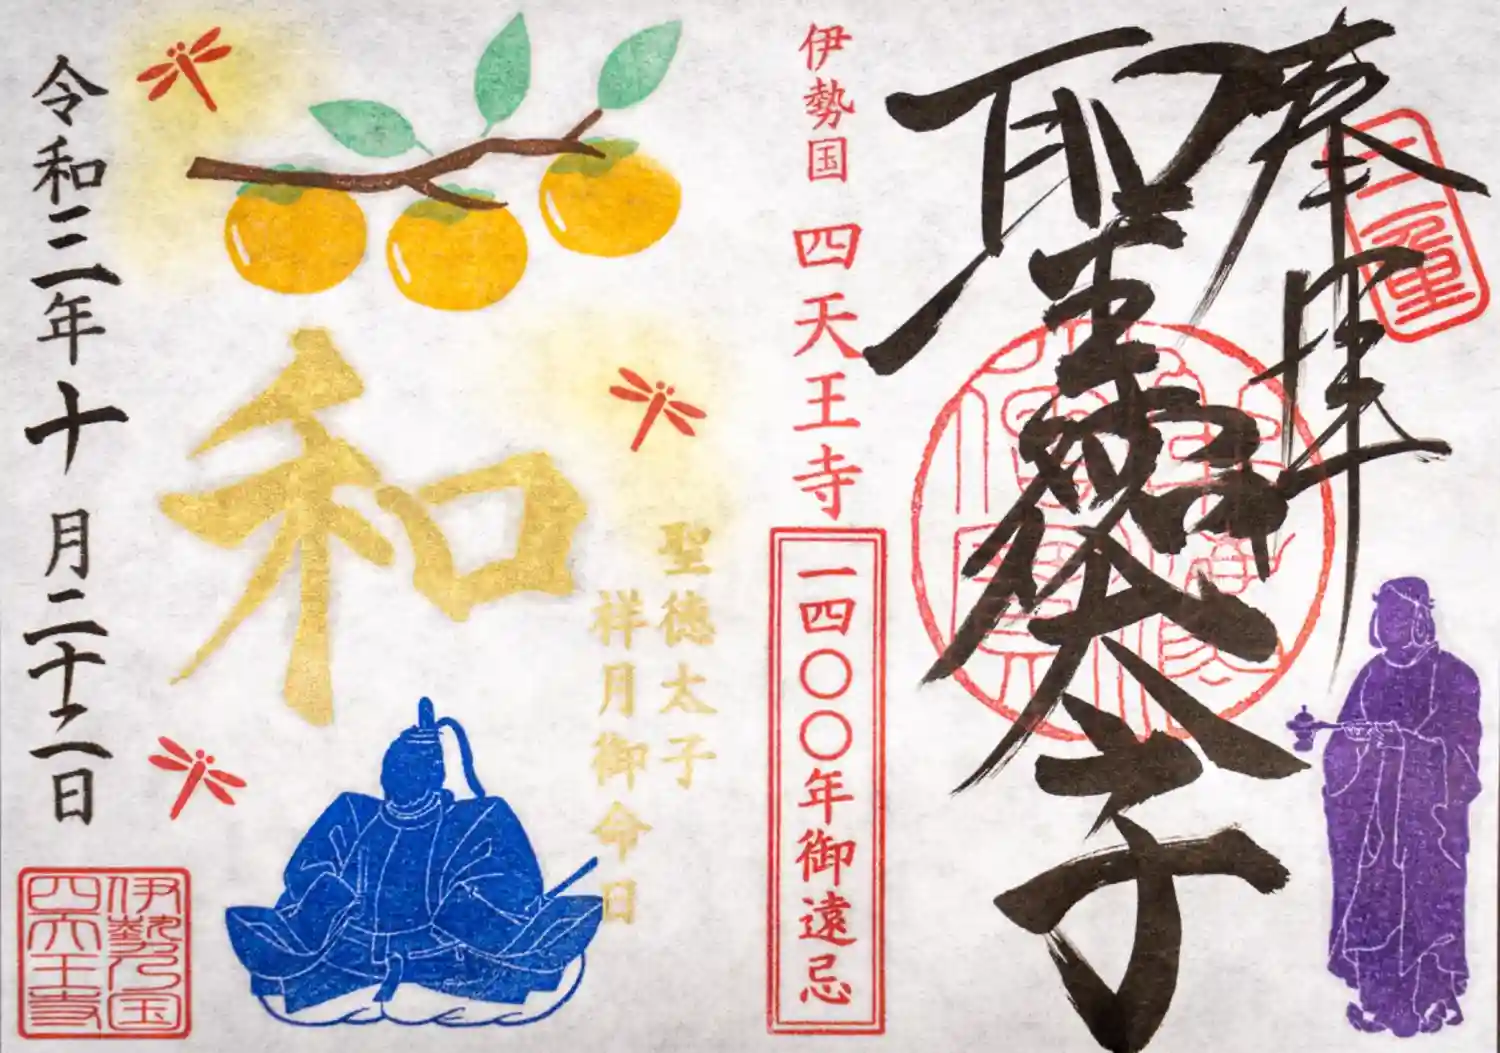 奉拝
三重
聖徳太子
伊勢国 四天王寺
一四〇〇年御遠忌
聖徳太子
祥月御命日
和
令和三年十月二十二日
伊勢乃国
四天王寺